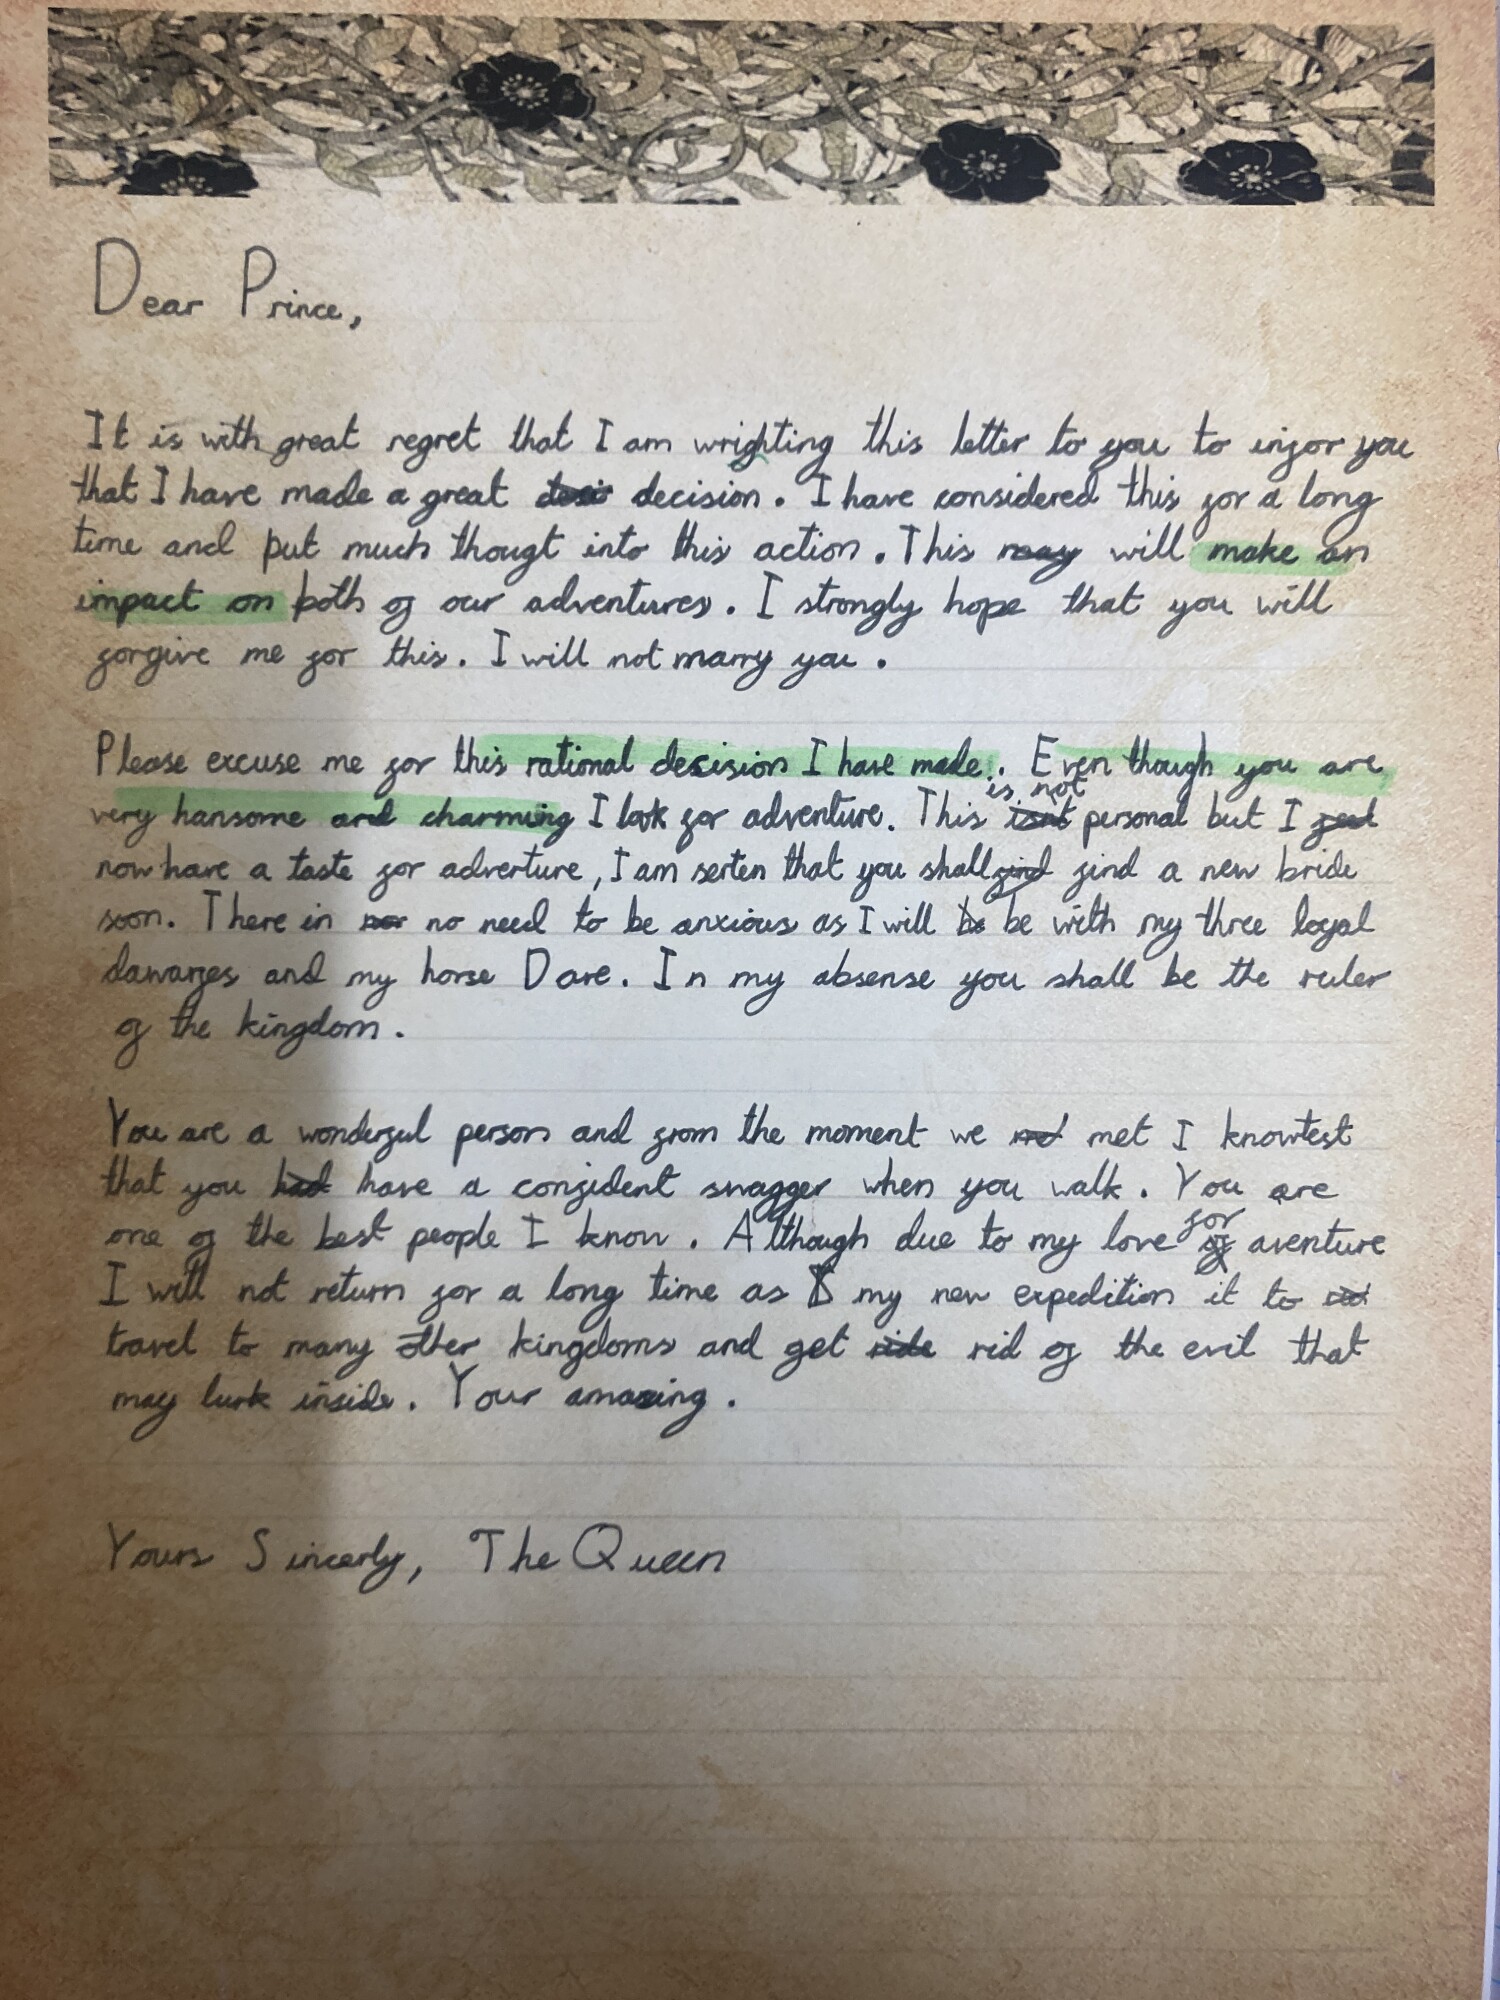 Dear Prince,
It is with great regret that I am wrighting this letter to you to infor you
that I have made a great decision. I have considered this for a long
time and put much thougt into this action. This may will make an
impact on both of our adventures. I strongly hope that you will
forgive me for this. I will not marry you.
Please excuse me for this rational decision I have made. Even though you are
very hansome and charming I look for adventure. This isnt is not personal but I feel
now have a taste for adverture, I am serten that you shall find find a new bride
soon. There in no need to be anxious as I will be be with my three loyal
dawarfes and my horse Dare. In my absense you shall be the ruler
of the kingdom.
You are a wonderful person and from the moment we met I knowtest
that you had have a confident swagger when you walk. You are
one of the best people I know. Although due to my love of for aventure
I will not return for a long time as my new expedition it to
travel to many other kingdoms and get ride rid of the evil that
may lurk inside. Your amazing.
Yours Sincerly, The Queen